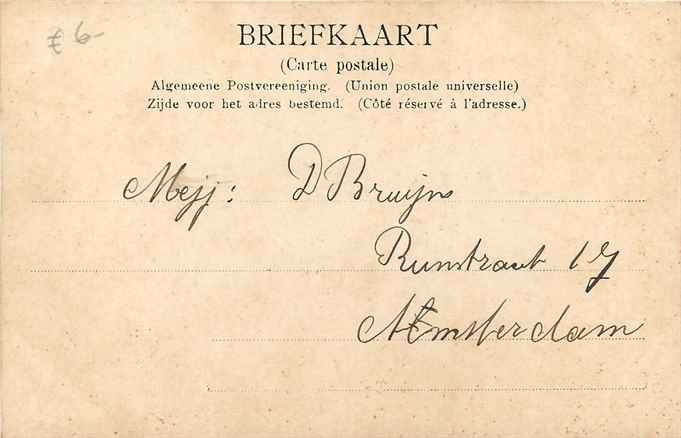 £ 6-
BRIEFKAART
(Carte postale)
Algemeene Postvereeniging. (Union postale universelle)
Zijde voor het adres bestemd. (Côté réservé à l'adresse.)
Mejj: D Bruijns
Runstraat 17
Amsterdam